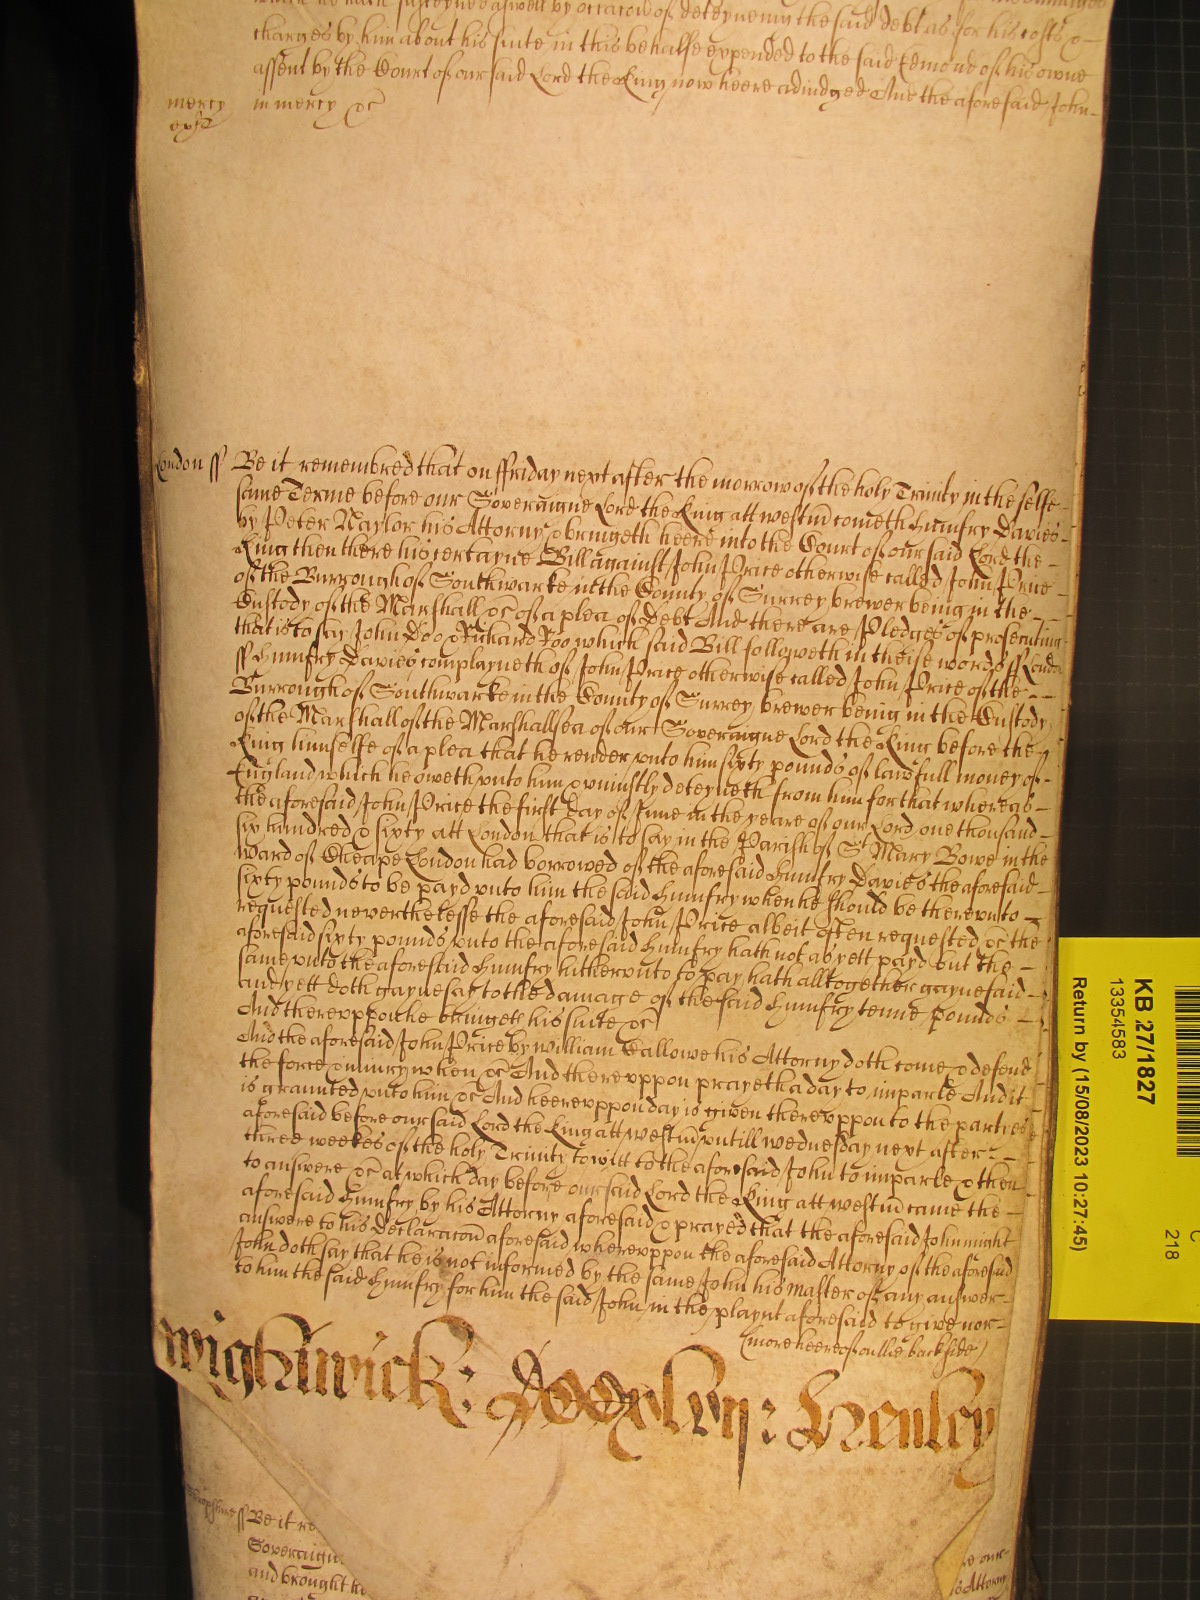 which he hath susteyned aswell by occacion of deteyneing the said debt as for his costs &
charges by him about his suite in this behalfe expended to the said Edmond of his owne
assent by the Court of our said Lord the King now heere adiudged And the aforesaid John
mercy in mercy &c
London ss Be it remembred that on ffriday next after the morrow of the holy Trinity in the selfe
same Terme before our Soveraigne Lord the King att westm cometh Humfry Davies
by Peter Naylor his Attorny & bringeth heere into the Court of our said Lord the
King then there his certayne Bill against John Price otherwise called John Price
of the Burrough of Southwarke in the County of Surrey brewer being in the
Custody of the Marshall &c of a plea of Debt And there are Pledges of prosecuting
that is to say John Doo & Richard Roo which said Bill followeth in theise words ss London
ss Humfry Davies complayneth of John Price otherwise called John Price of the
Burrough of Southwarke in the County of Surrey brewer being in the Custody
of the Marshall of the Marshallsea of our Soveraigne Lord the King before the
King himselfe of a plea that he render unto him sixty pounds of lawfull money of
England which he oweth unto him & uniustly deteyneth from him for that whereas
the aforesaid John Price the first day of June in the yeare of our Lord one thousand
six hundred & sixty att London that is to say in the Parish of St Mary Bowe in the
ward of Cheape London had borrowed of the aforesaid Humfry Davies the aforesaid
sixty pounds to be payd unto him the said Humfry when he should be thereunto
requested neverthelesse the aforesaid John Price albeit often requested &c the
aforesaid sixty pounds unto the aforesaid Humfry hath not as yett payd but the
same unto the aforesaid Humfry hitherunto to pay hath alltogether gaynesaid
and yett doth gaynesay to the damage of the said Humfry tenne pounds
And thereuppon he bringeth his suite &c
And the aforesaid John Price by William Tallowe his Attorny doth come & defend
the force & iniury when &c And thereuppon prayeth a day to imparle And it
is graunted unto him &c And heereuppon day is given thereuppon to the partyes
aforesaid before our said Lord the King att westm untill wednesday next after
three weekes of the holy Trinity to witt to the aforesaid John to imparle & then
to answere &c at which day before our said Lord the King att westm came the
aforesaid Humfry by his Attorny aforesaid & prayed that the aforesaid John might
answere to his declaracon aforesaid whereuppon the aforesaid Attorny of the aforesaid
John doth say that he is not informed by the same John his master of any answer
to him the said Humfry for him the said John in the playnt aforesaid to give nor
(more heereof on the backside)
Wightwick: Henley
ss Be it re
Soveraigne
and brought he
re our
is Attorny
KB 27/1827
13354583
Return by (15/08/2023 10:27:45)
C
218